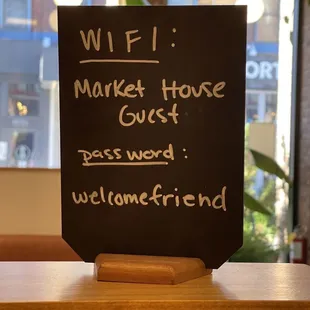 WIFI:
Market House
Guest
password:
welcomefriend
ORT